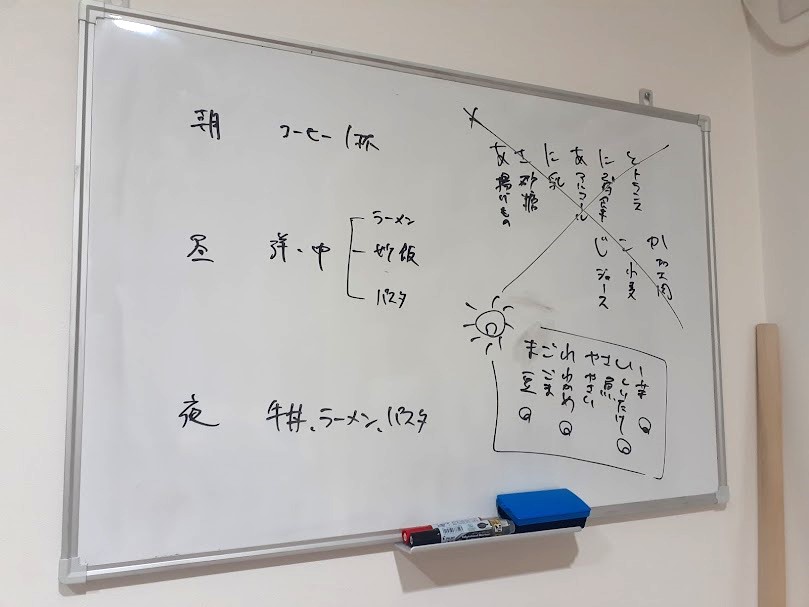 朝 コーヒー1杯
昼 洋・中
ラーメン
炒飯
パスタ
夜 牛丼、ラーメン、パスタ
と トランス
に
あ アルコール
に 乳
さ 砂糖
あ 揚げもの
か 加工肉
こ 小麦
じ ジュース
まごわやさしい
豆
ごま
わかめ
やさい
魚
しいたけ
芋